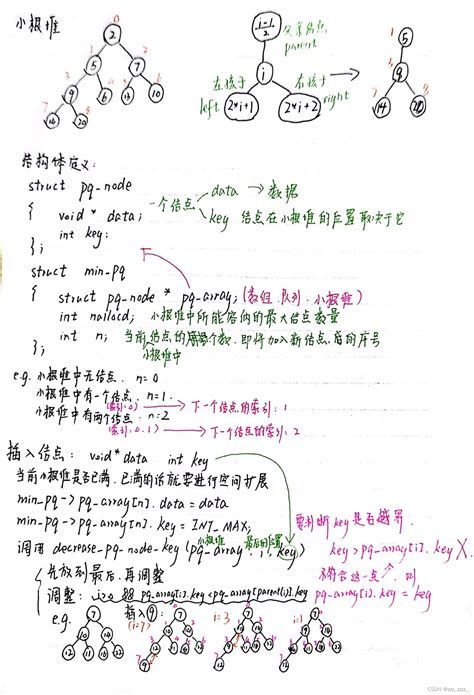 小根堆
2
5 7
9 6 12 10
i-1
2
父亲结点
parent
i
左孩子
left
右孩子
right
2*i+1
2*i+2
5
9
14
结构体定义:
struct pq-node
{
void * data;
int key;
};
一个结点
data → 数据
key 结点在小根堆的位置取决于它
struct min-pq
{
struct pq-node * pq-array; (数组、队列、小根堆)
int nalloced; 小根堆中所能容纳的最大结点数量
int n; 当前结点的个数,即将加入新结点的序号
小根堆中
};
e.g. 小根堆中无结点. n=0
小根堆中有一个结点. n=1.
(索引:0) → 下一个结点的索引: 1
小根堆中有两个结点. n=2
(索引:0.1) → 下一个结点的索引: 2
插入结点: void* data int key
当前小根堆是否已满. 已满的话就要进行空间扩展
min_pq -> pq_array[n].data = data
min_pq -> pq_array[n].key = INT_MAX;
小根堆 最后的位置
调用 decrease-pq-node-key (pq-array, i, key)
要判断 key 是否越界.
key > pq-array[i].key X
不符合这一点, 则
pq-array[i].key = key
先放到最后, 再调整
调整: i>0 && pq-array[i].key < pq-array[parent(i)].key
e.g. 插入
i=7
i=3
i=1
CSDN